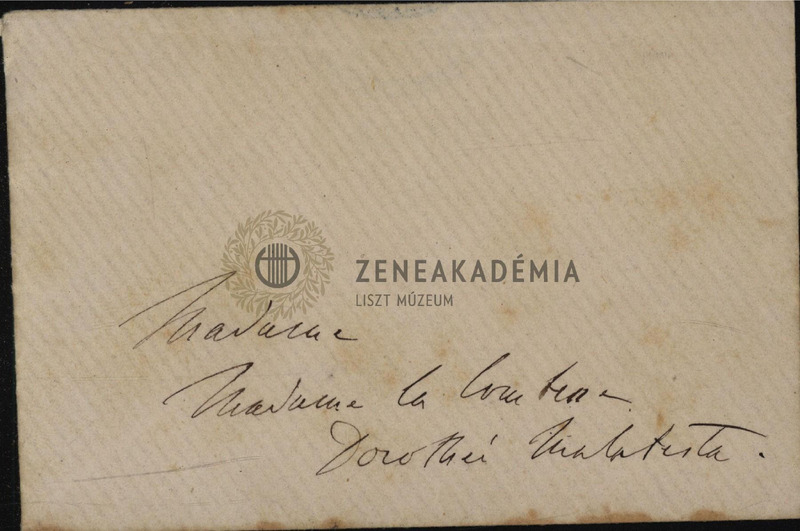 ZENEAKADÉMIA
LISZT MÚZEUM
Madame
Madame la Comtesse
Dorothée Malatesta.